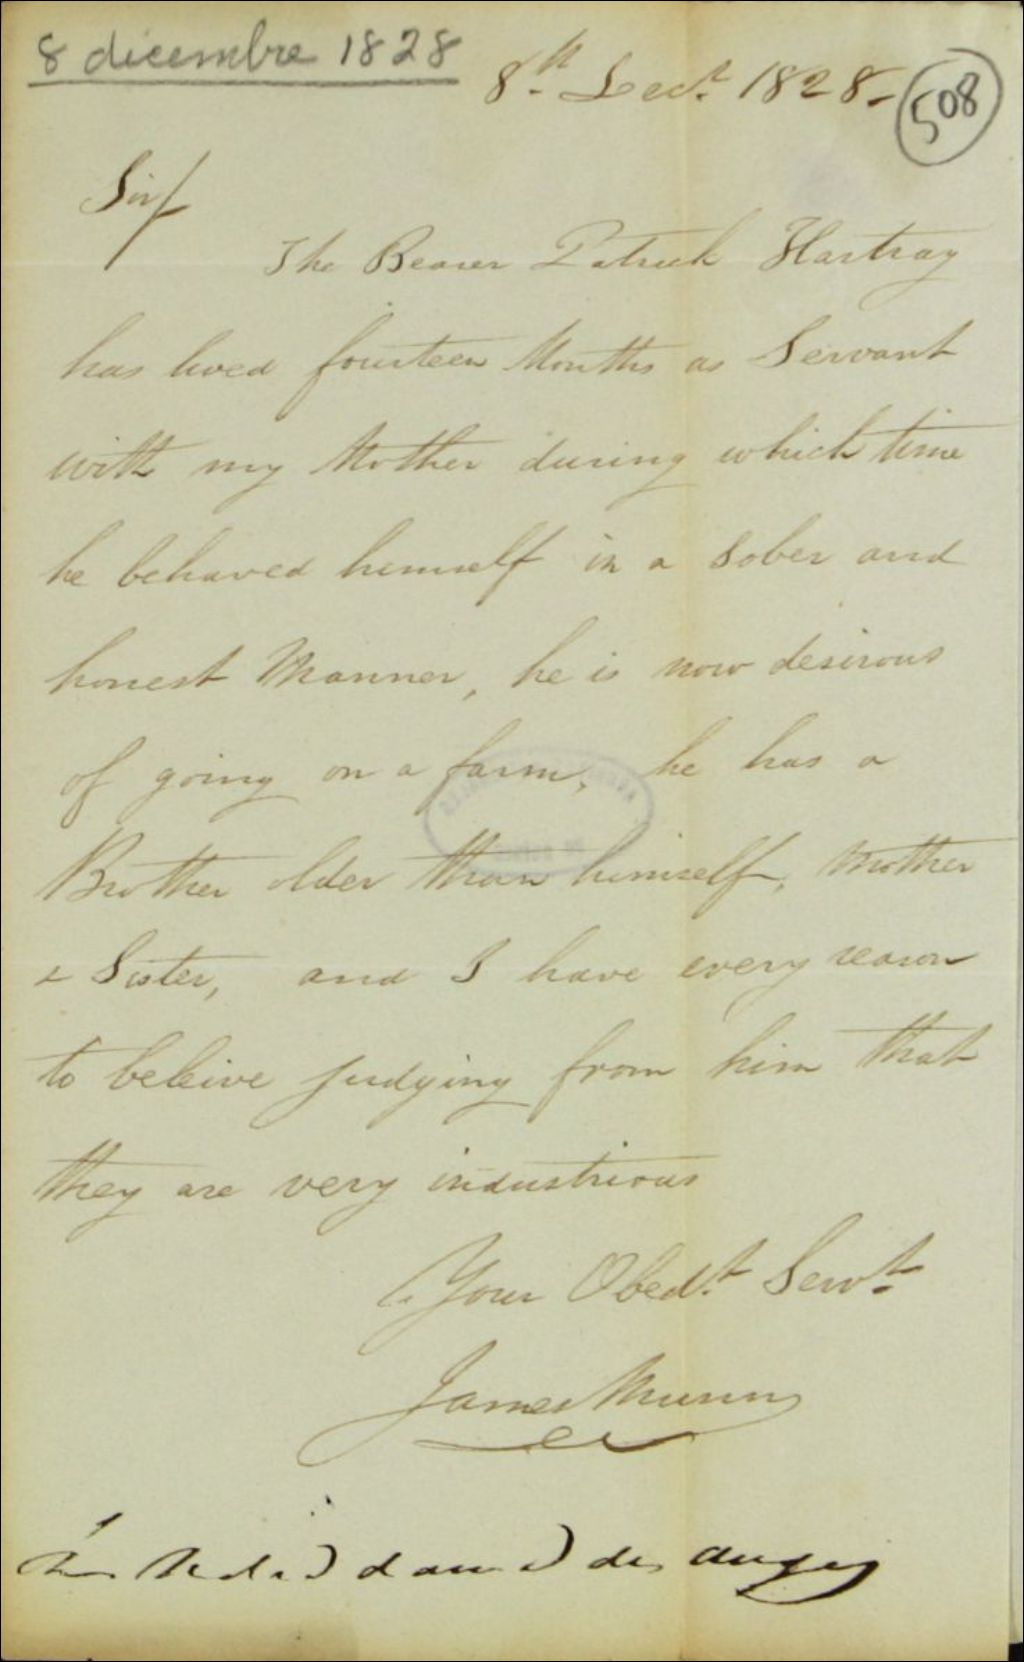 8 décembre 1828
8th Decr. 1828-
508
Sir/
The Bearer Patrick Hartray
has lived fourteen Months as Servant
with my Mother during which time
he behaved himself in a Sober and
honest Manner, he is now desirous
of going on a farm, he has a
Brother older than himself, Mother
& Sister, and I have every reason
to beleive judging from him that
they are very industrious
Your Obedt. Servt.
James Munn